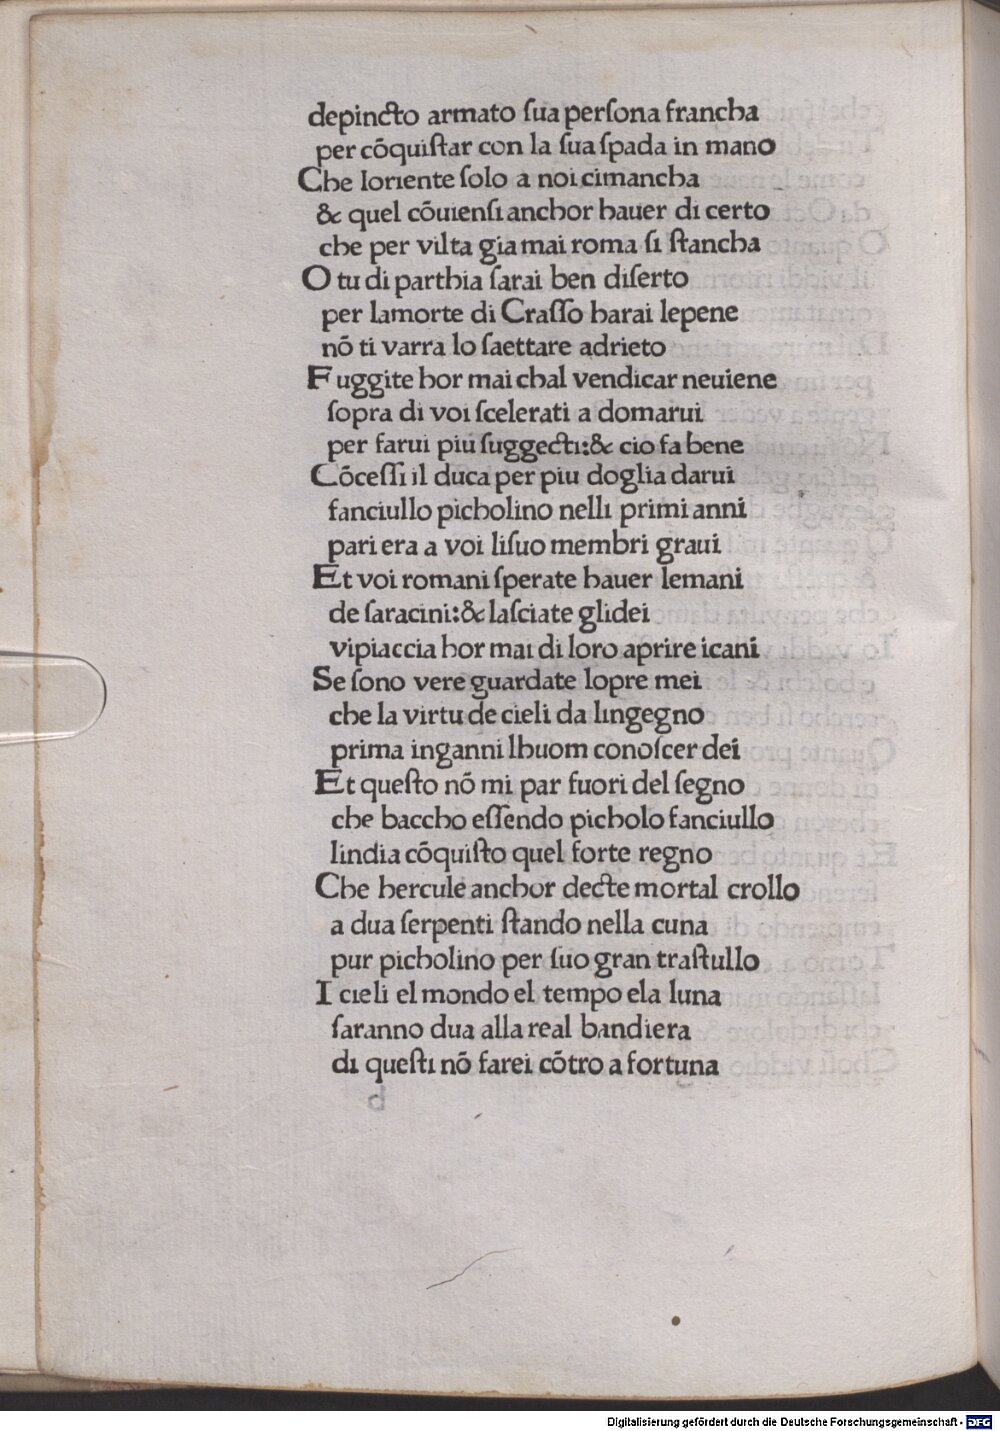 depincto armato ſua perſona francha
per cõquiſtar con la ſua ſpada in mano
Che loriente ſolo a noi cimancha
& quel cõuienſi anchor hauer di certo
che per vilta gia mai roma ſi ſtancha
O tu di parthia ſarai ben diſerto
per lamorte di Craſſo harai lepene
nõ ti varra lo ſaettare adrieto
Fuggite hor mai chal vendicar neuiene
ſopra di voi ſcelerati a domarui
per farui piu ſuggecti:& cio fa bene
Cõceſſi il duca per piu doglia darui
fanciullo picholino nelli primi anni
pari era a voi liſuo membri graui
Et voi romani ſperate hauer lemani
de ſaracini:& laſciate glidei
vipiaccia hor mai di loro aprire icani
Se ſono vere guardate lopre mei
che la virtu de cieli da lingegno
prima inganni lhuom conoſcer dei
Et queſto nõ mi par fuori del ſegno
che baccho eſſendo picholo fanciullo
lindia cõquiſto quel forte regno
Che hercule anchor decte mortal crollo
a dua ſerpenti ſtando nella cuna
pur picholino per ſuo gran traſtullo
I cieli el mondo el tempo ela luna
ſaranno dua alla real bandiera
di queſti nõ farei cõtro a fortuna
Digitalisierung gefördert durch die Deutsche Forschungsgemeinschaft - DFG